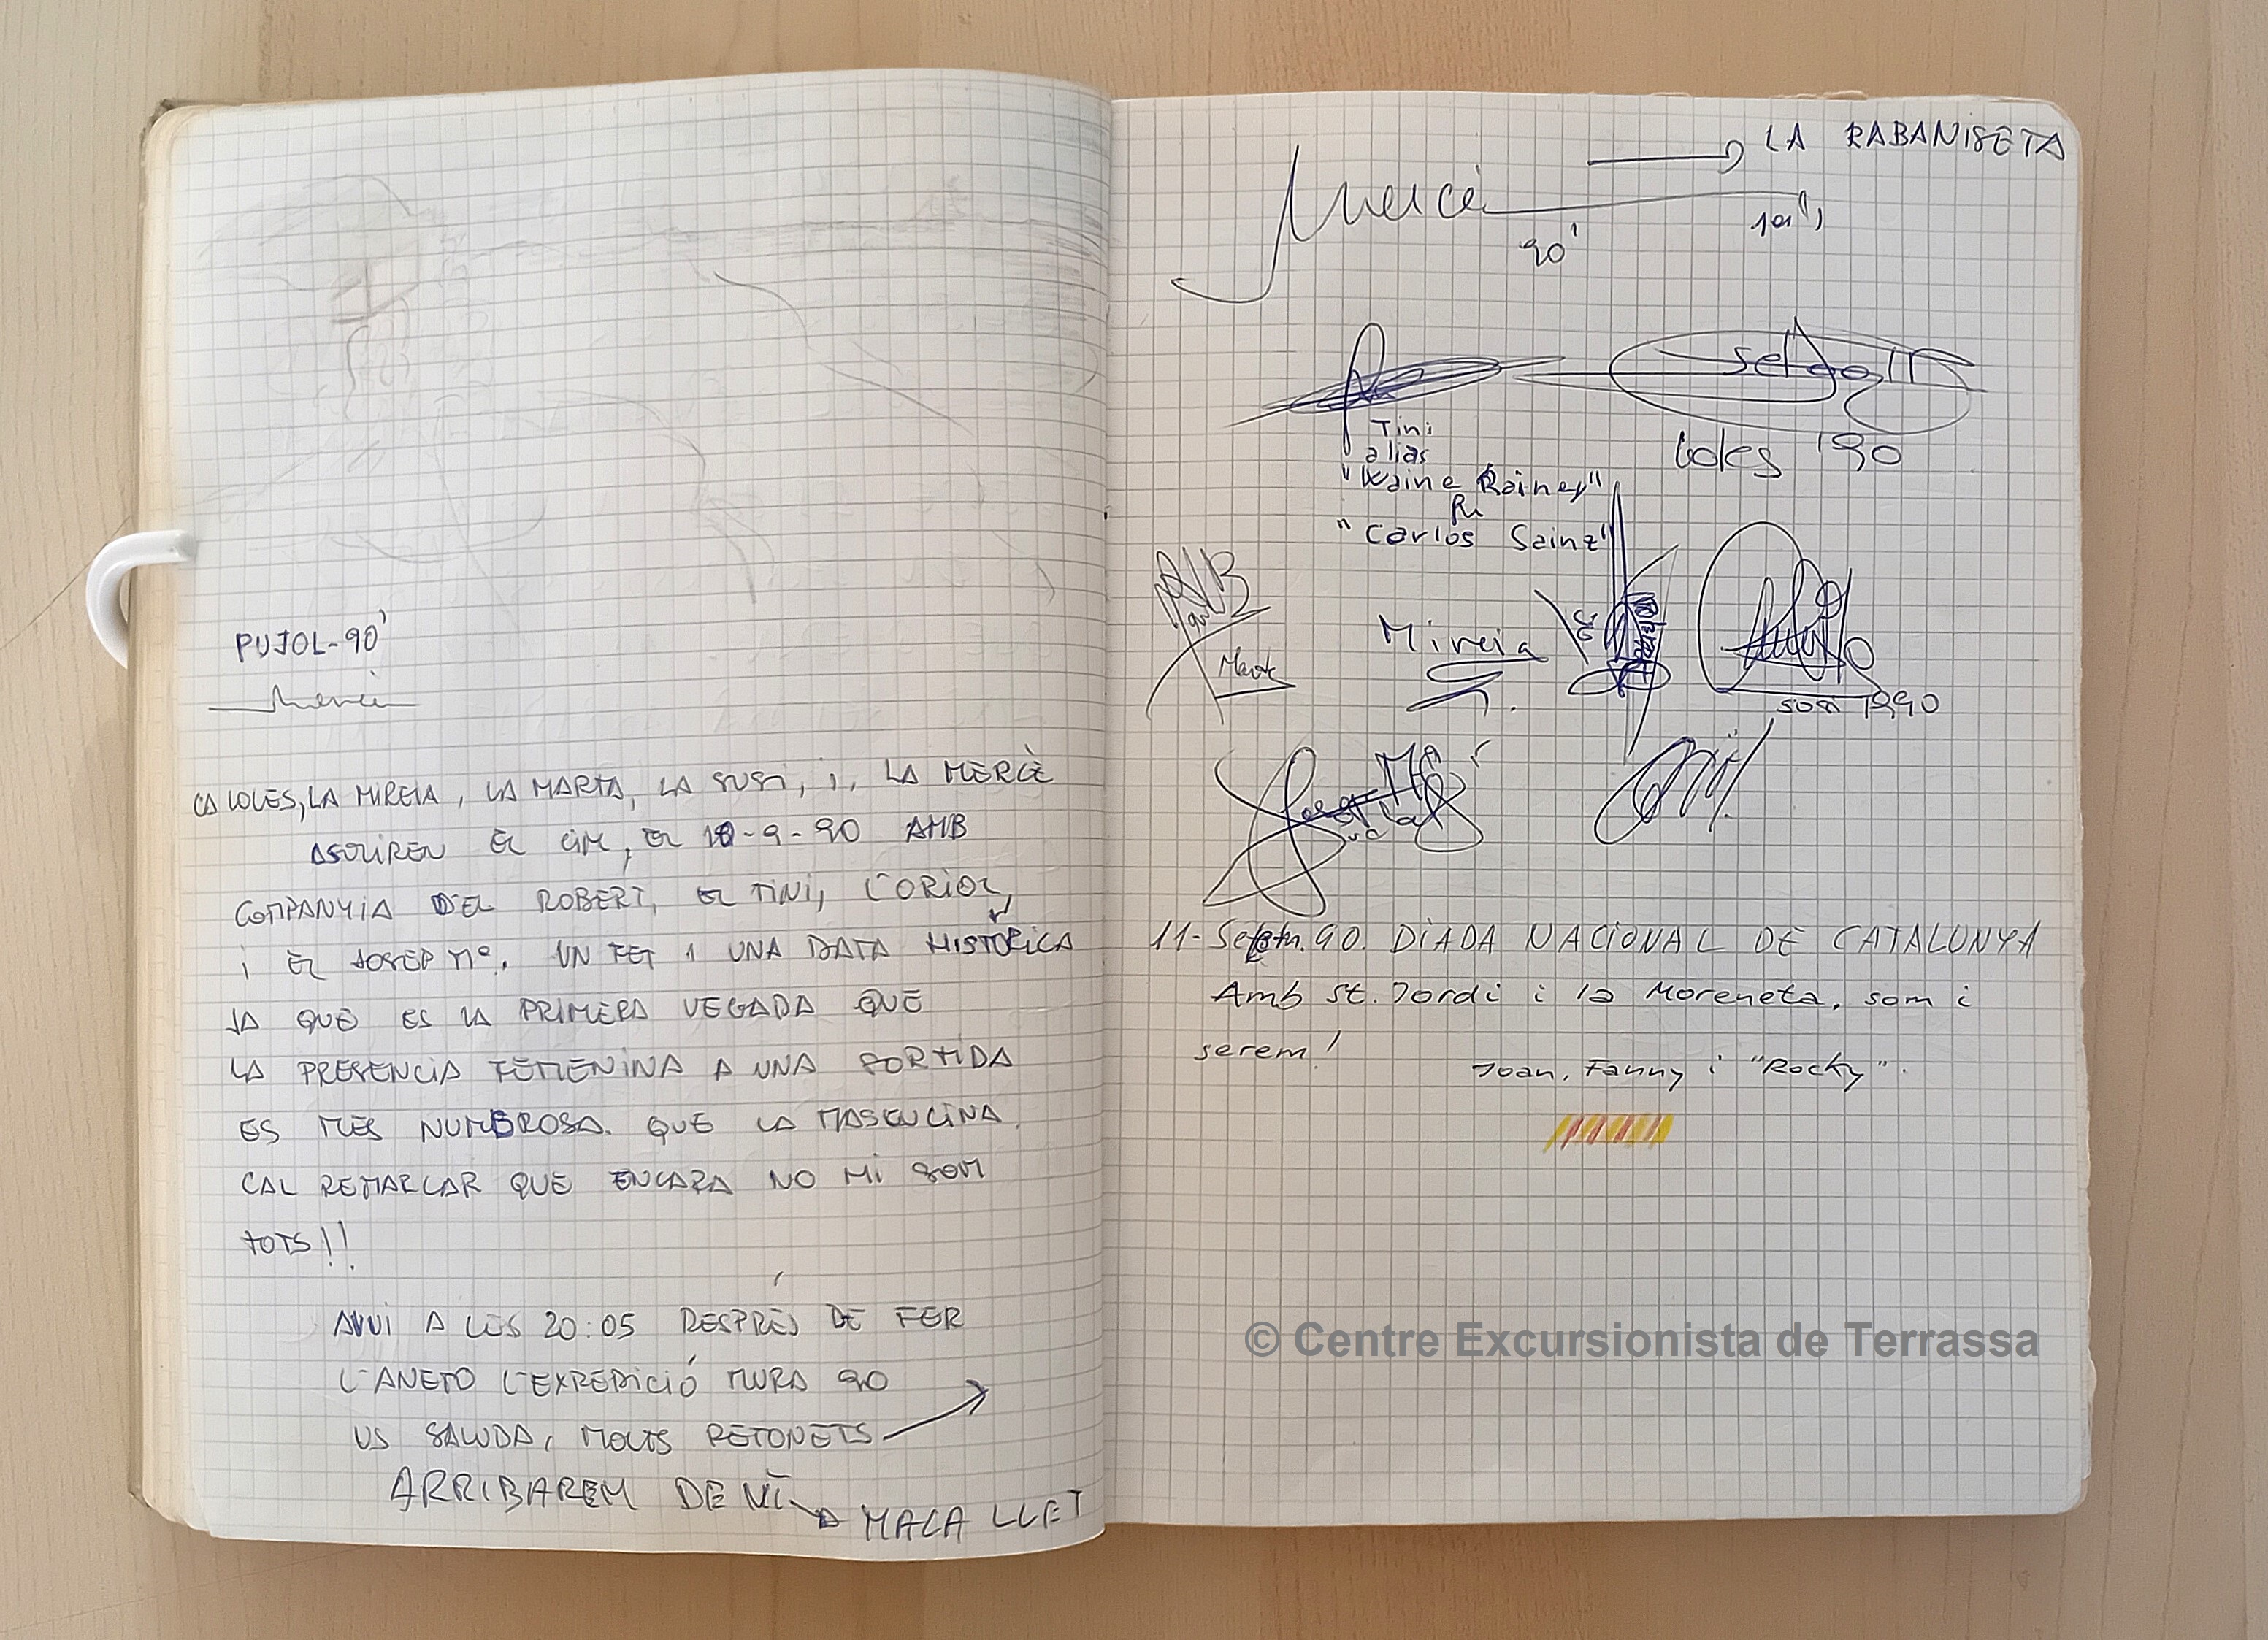 PUJOL-90'
Mercè
LA LOLES, LA MIREIA, LA MARTA, LA SUSI, i, LA MERCÈ
ASOLIREN EL CIM, EL 10-9-90 AMB
COMPANYIA DEL ROBERT, EL TINI, L'ORIOL,
i EL JOSEP Mº. UN FET i UNA DATA HISTORICA
JA QUE ES LA PRIMERA VEGADA QUE
LA PRESENCIA FEMENINA A UNA SORTIDA
ES MES NUMBROSA. QUE LA MASCULINA.
CAL REMARCAR QUE ENCARA NO HI SOM
TOTS!!
AVUI A LES 20:05 DESPRÉS DE FER
L'ANETO L'EXPEDICIÓ MURA 90
US SALUDA, MOLTS PETONETS
ARRIBAREM DE NIT
MALA LLET
LA RABANISETA
Mercè
90'
Loles '90
Tini
alias
"Waine Rainey"
"Carlos Sainz"
Marta
Mireia
som 1990
11-Setem. 90. DIADA NACIONAL DE CATALUNYA
Amb St. Jordi i la Moreneta, som i
serem!
Joan, Fanny i "Rocky".
© Centre Excursionista de Terrassa